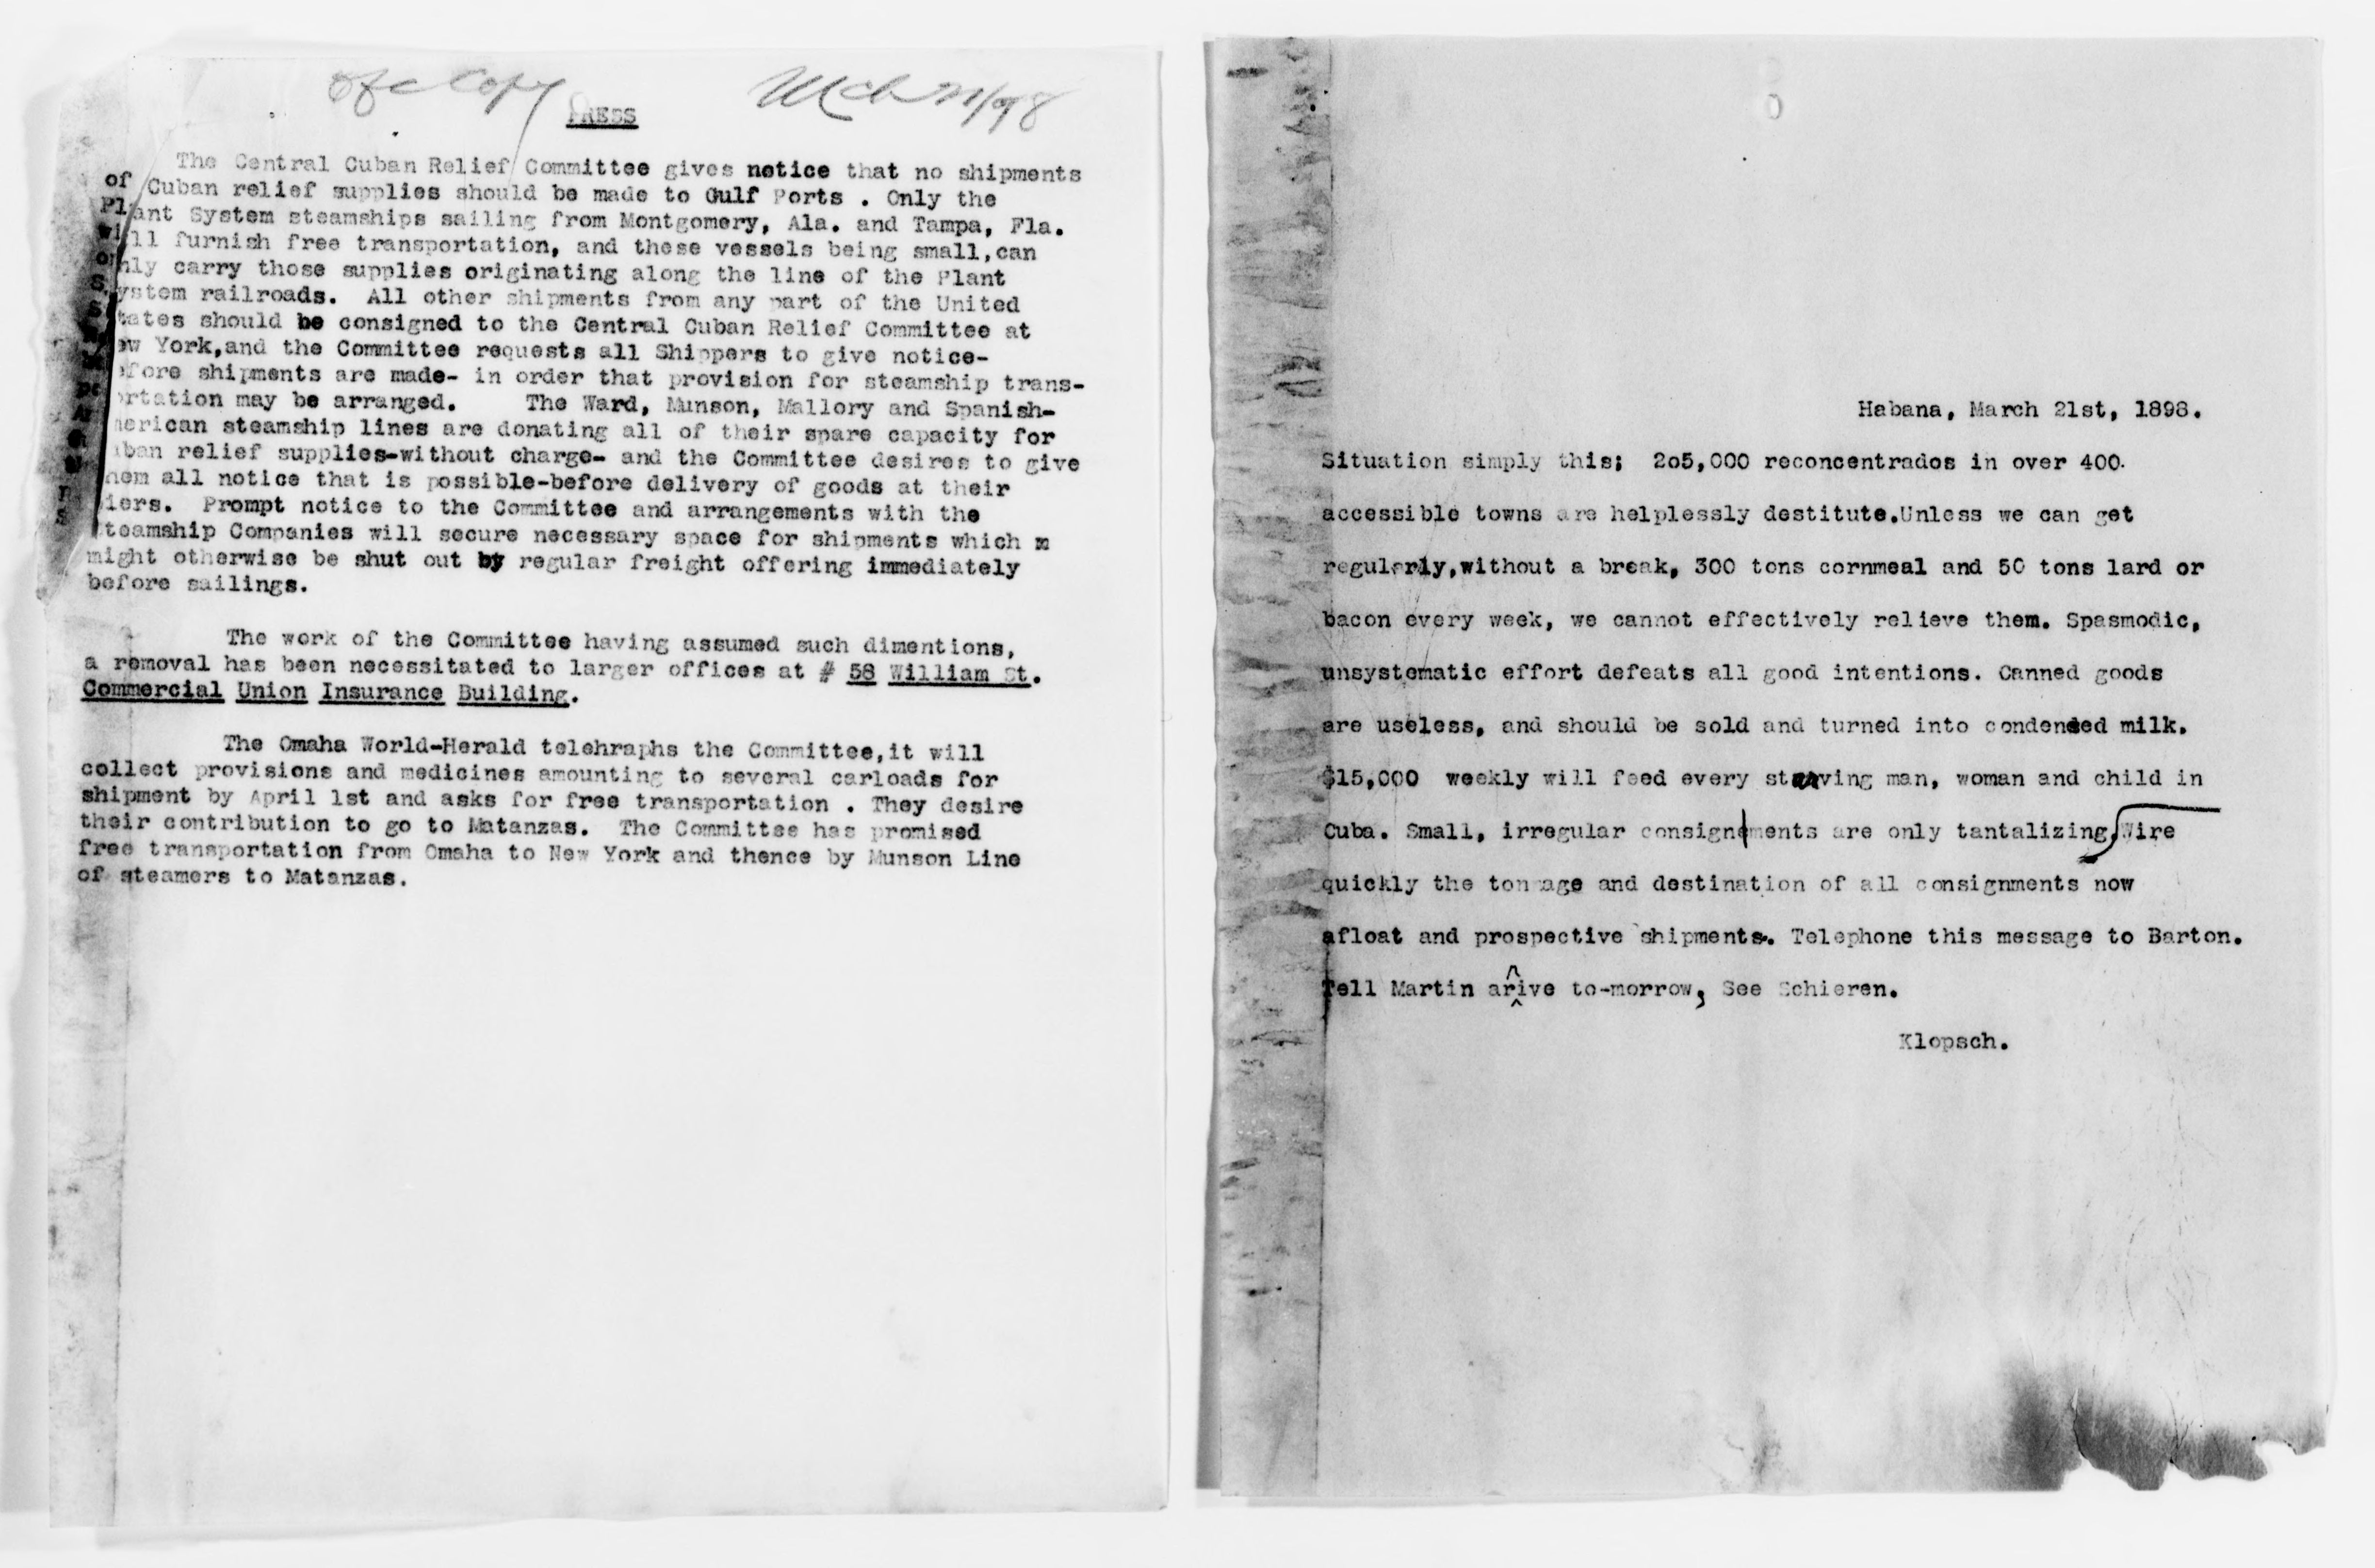 Ofc Copy
Mch 21/98
PRESS
The Central Cuban Relief Committee gives notice that no shipments
of Cuban relief supplies should be made to Gulf Ports . Only the
Plant System steamships sailing from Montgomery, Ala. and Tampa, Fla.
will furnish free transportation, and these vessels being small,can
only carry those supplies originating along the line of the Plant
System railroads. All other shipments from any part of the United
States should be consigned to the Central Cuban Relief Committee at
ew York,and the Committee requests all Shippers to give notice-
efore shipments are made- in order that provision for steamship trans-
ortation may be arranged. The Ward, Munson, Mallory and Spanish-
merican steamship lines are donating all of their spare capacity for
uban relief supplies-without charge- and the Committee desires to give
hem all notice that is possible-before delivery of goods at their
iers. Prompt notice to the Committee and arrangements with the
teamship Companies will secure necessary space for shipments which m
might otherwise be shut out by regular freight offering immediately
before sailings.
The work of the Committee having assumed such dimentions,
a removal has been necessitated to larger offices at # 58 William St.
Commercial Union Insurance Building.
The Omaha World-Herald telehraphs the Committee,it will
collect provisions and medicines amounting to several carloads for
shipment by April 1st and asks for free transportation . They desire
their contribution to go to Matanzas. The Committee has promised
free transportation from Omaha to New York and thence by Munson Line
of steamers to Matanzas.
Habana, March 21st, 1898.
Situation simply this; 2o5,000 reconcentrados in over 400.
accessible towns are helplessly destitute.Unless we can get
regularly,without a break, 300 tons cornmeal and 50 tons lard or
bacon every week, we cannot effectively relieve them. Spasmodic,
unsystematic effort defeats all good intentions. Canned goods
are useless, and should be sold and turned into condensed milk.
$15,000 weekly will feed every starving man, woman and child in
Cuba. Small, irregular consignments are only tantalizing, Wire
quickly the tonnage and destination of all consignments now
afloat and prospective shipments. Telephone this message to Barton.
Tell Martin arrive to-morrow, See Schieren.
Klopsch.